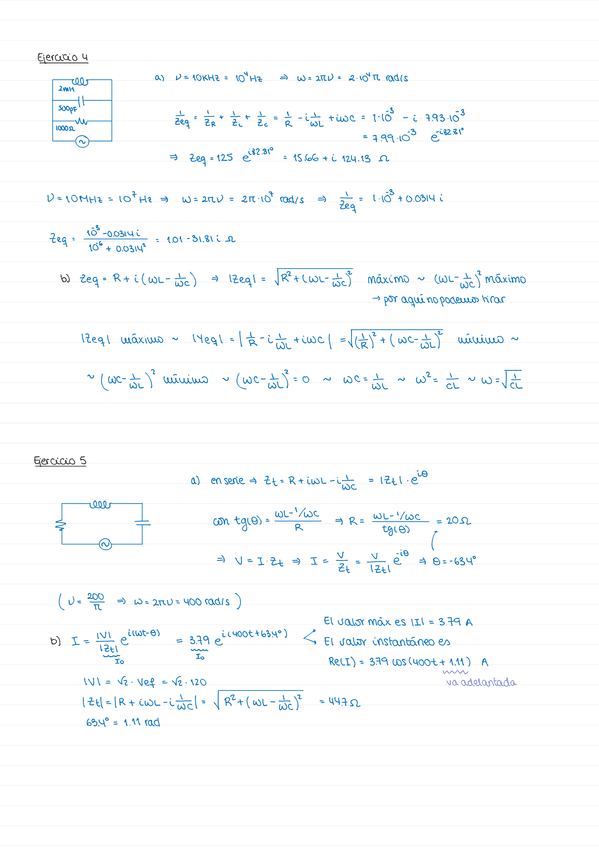 Ejercicio 4
2mH
500pF
1000Ω
a) ν = 10KHz = 10⁴ Hz ⇒ ω = 2πν = 2·10⁴π rad/s
1/Zeq = 1/Z_R + 1/Z_L + 1/Z_C = 1/R - i 1/ωL + iωC = 1·10⁻³ - i 7.93·10⁻³
= 7.99·10⁻³ e^(-i82.81°)
⇒ Zeq = 125 e^(i82.81°) = 15.66 + i 124.13 Ω
ν = 10MHz = 10⁷ Hz ⇒ ω = 2πν = 2π·10⁷ rad/s ⇒ 1/Zeq = 1·10⁻³ + 0.0314 i
Zeq = (10⁻³ - 0.0314 i)/(10⁻⁶ + 0.0314²) = 1.01 - 31.81 i Ω
b) Zeq = R + i(ωL - 1/ωC) ⇒ |Zeq| = √(R² + (ωL - 1/ωC)²) máximo ~ (ωL - 1/ωC)² máximo
→ por aquí no podemos tirar
|Zeq| máximo ~ |Yeq| = |1/R - i 1/ωL + iωC| = √((1/R)² + (ωC - 1/ωL)²) mínimo ~
~ (ωC - 1/ωL)² mínimo ~ (ωC - 1/ωL)² = 0 ~ ωC = 1/ωL ~ ω² = 1/CL ~ ω = √(1/CL)
Ejercicio 5
a) en serie ⇒ Z_t = R + iωL - i 1/ωC = |Z_t| · e^(iθ)
con tg(θ) = (ωL - 1/ωC)/R ⇒ R = (ωL - 1/ωC)/tg(θ) = 20Ω
⇒ V = I·Z_t ⇒ I = V/Z_t = V/|Z_t| e^(-iθ) ⇒ θ = -63.4°
(ν = 200/π ⇒ ω = 2πν = 400 rad/s)
b) I = |V|/|Z_t| e^(i(ωt-θ)) = 3.79 e^(i(400t+63.4°))
I₀ I₀
El valor máx es |I| = 3.79 A
El valor instantáneo es
Re(I) = 3.79 cos(400t + 1.11) A
va adelantada
|V| = √2 · Vef = √2 · 120
|Z_t| = |R + iωL - i 1/ωC| = √(R² + (ωL - 1/ωC)²) = 44.7Ω
63.4° = 1.11 rad